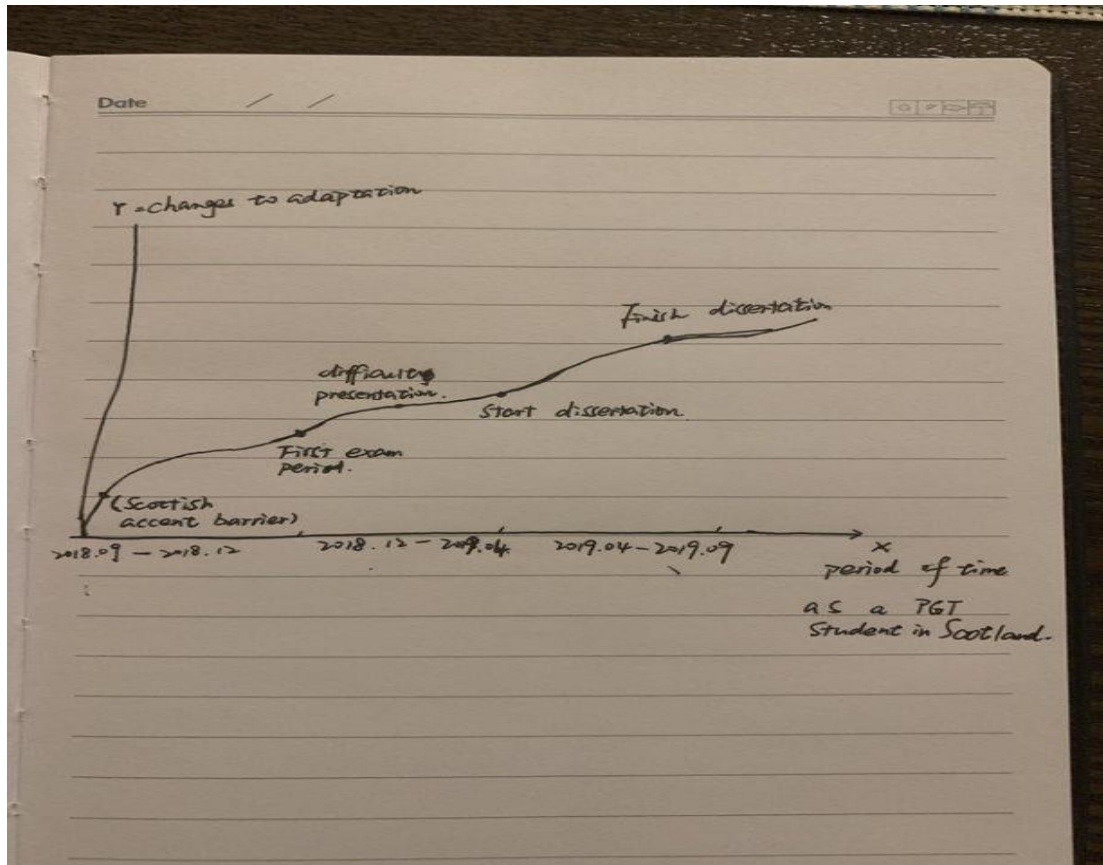 Date / /
Y = changes to adaptation
Finish dissertation
difficulty
presentation.
Start dissertation
First exam
period.
(Scottish
accent barrier)
2018.09 - 2018.12 2018.12 - 2019.04 2019.04 - 2019.09
X
period of time
as a PGT
Student in Scotland.